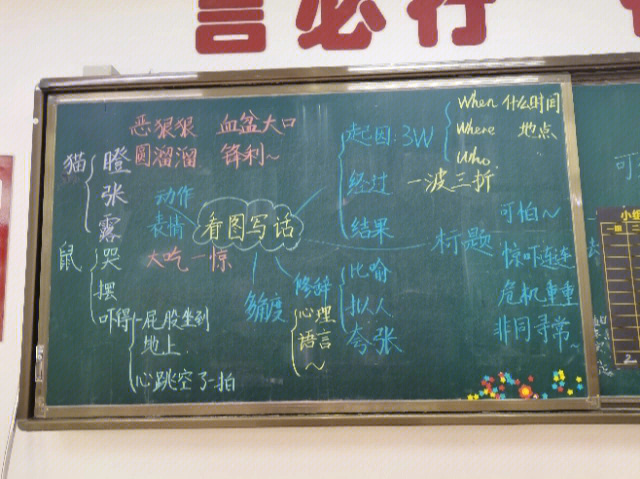 言必行
恶狠狠 血盆大口
圆溜溜 锋利~
猫
瞪
张
露
鼠
哭
摆
吓得
一屁股坐到
地上.
心跳空了一拍
动作
表情
大吃一惊
看图写话
多角度
修辞
心理
语言
~
比喻
拟人
夸张
起因:3W
When 什么时间
Where 地点
Who
经过 一波三折
结果
标题
可怕~
惊吓连连
危机重重
非同寻常~
可
小组
一
三
2